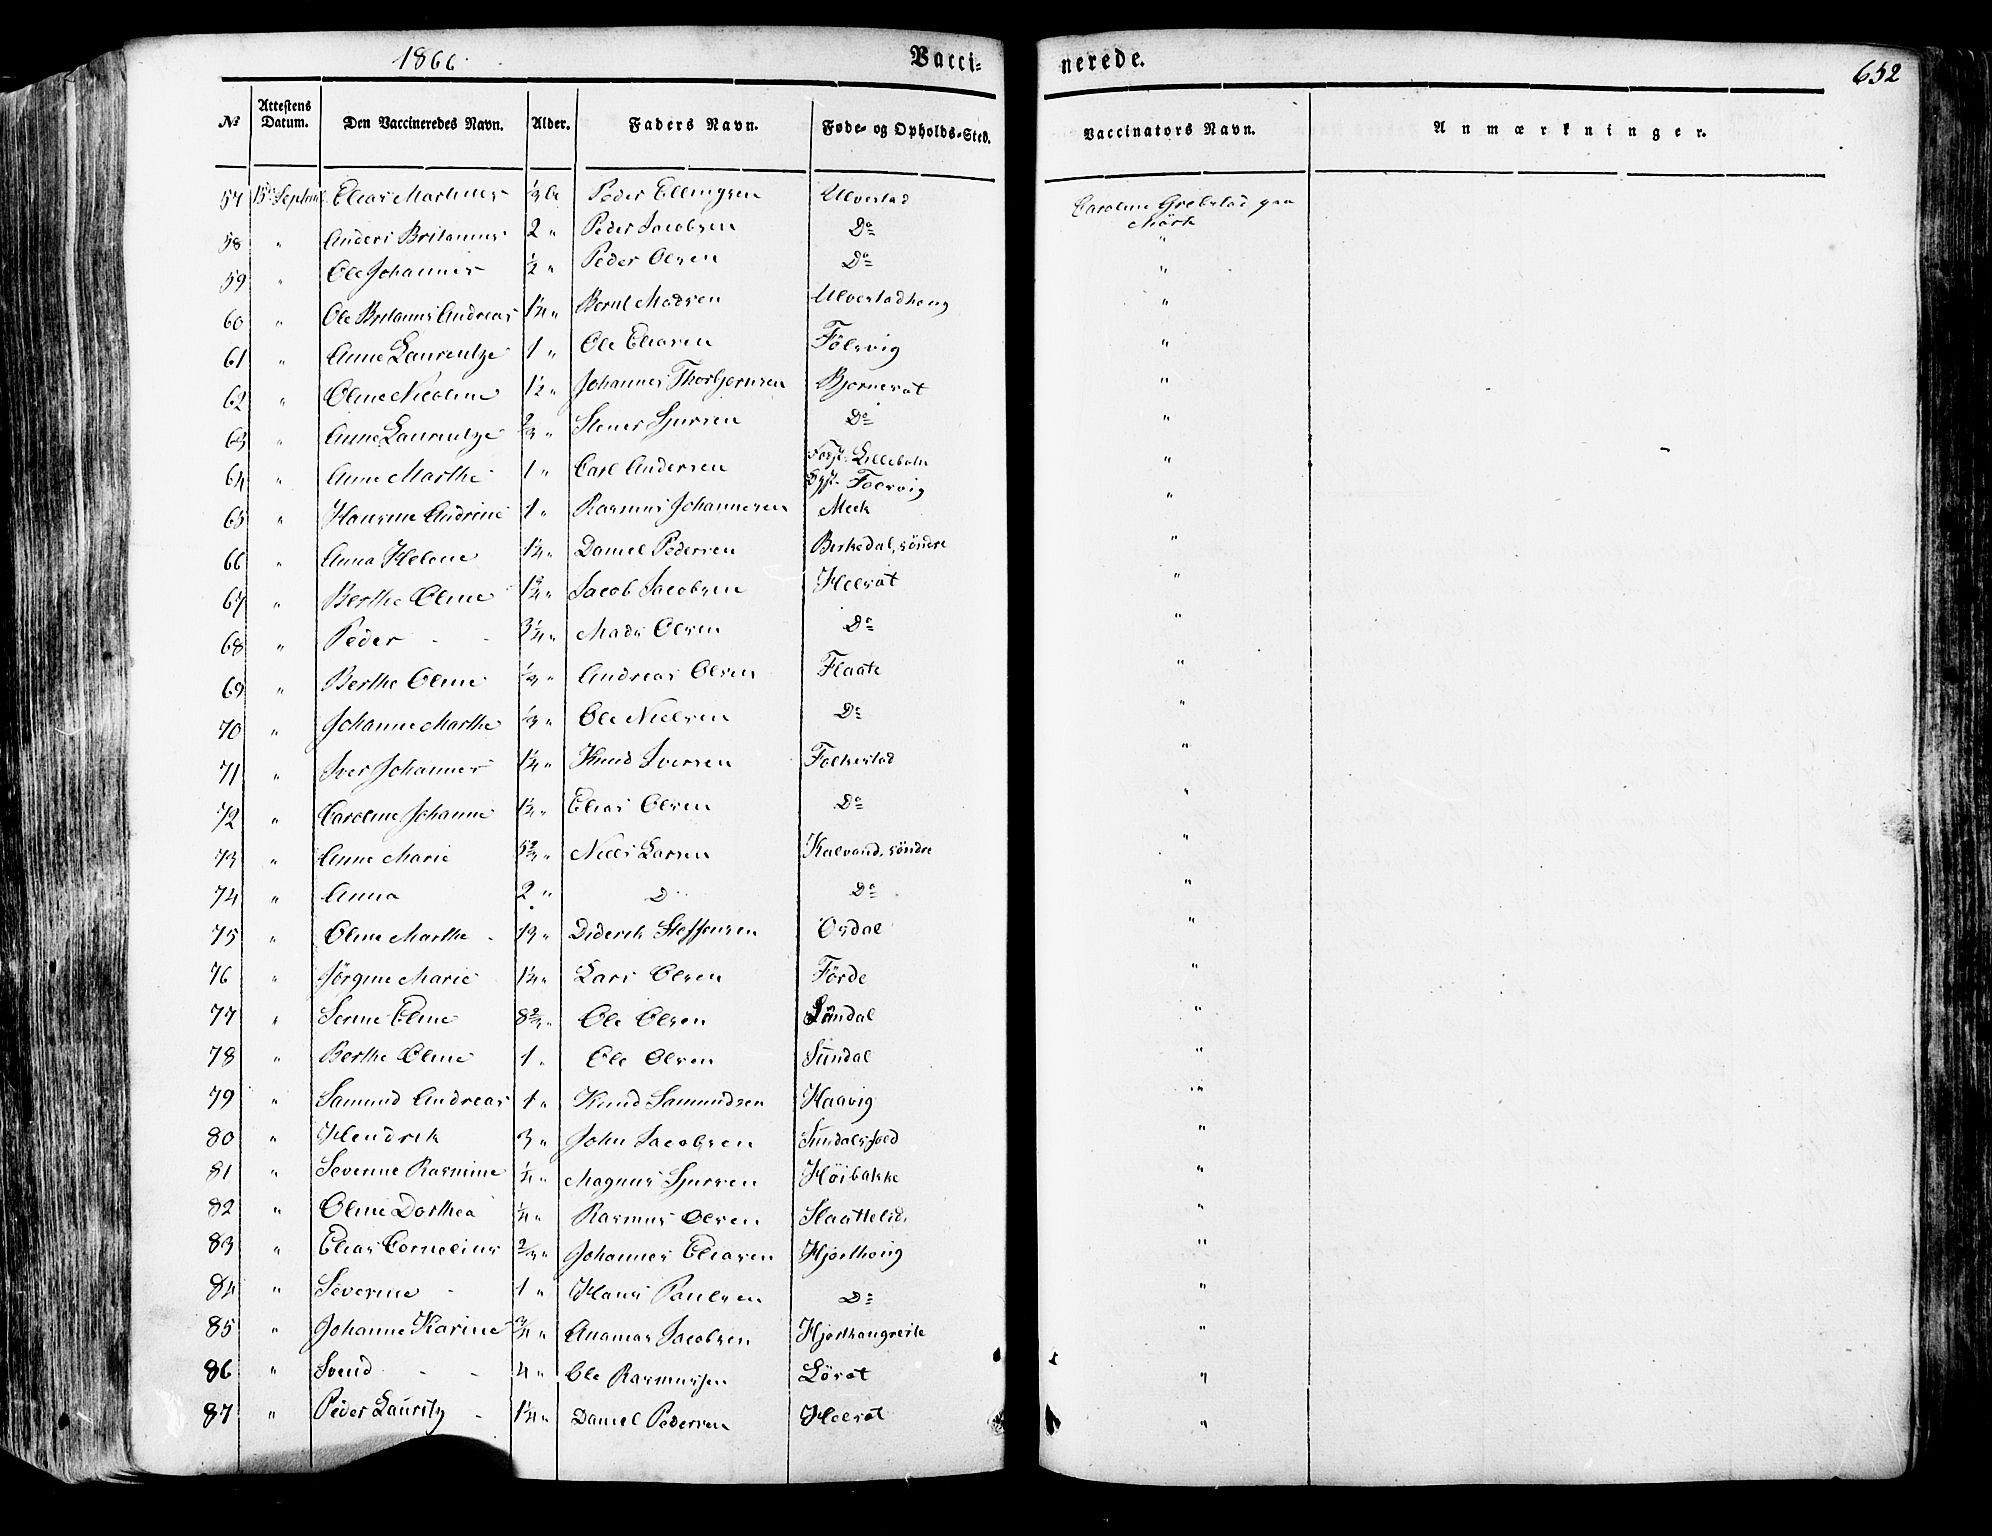 1866. Vacci- nerede. 652
№ Attestens Datum. Den Vaccineredes Navn. Alder. Faders Navn. Føde- og Opholds-Sted. Vaccinators Navn. Anmærkninger.
57 15de Septmb. Elias Martinus Peder Ellingsen Ulvestad Caroline Grebstad paa
Mörk
58 " Anders Britanus 2 " Peder Jacobsen Do "
59 " Ole Johannes ½ " Peder Olsen Do "
60 " Ole Britanus Andreas 1¼ " Bernt Madsen Ulvestadhaug "
61 " Anne Laurentze 1 " Ole Eliasen Fölsvig "
62 " Oline Nicoline 1½ " Johannes Thorbjørnsen Bjørnesæt "
63 " Anne Laurentze 2/3 " Stener Sjursen Do "
64 " Anne Marthe 1 " Carl Andersen Fødst. Lillebøln "
Opst. Folsvig
65 " Hansine Andrine 1 " Rasmus Johannesen Meek "
66 " Anna Helene 1¼ " Daniel Pedersen Birkedal, søndre "
67 " Berthe Oline 1¾ " Jacob Jacobsen Helsæt "
68 " Peder - - 3¼ " Mads Olsen Do "
69 " Berthe Oline 1/3 " Andreas Olsen Flaate "
70 " Johanne Marthe 1/3 " Ole Nielsen Do "
71 " Iver Johannes 1¼ " Knud Iversen Folkestad "
72 " Caroline Johanne 1¼ " Elias Olsen Do "
73 " Anne Marie 5 2/3 " Niels Larsen Kalvand, søndre "
74 " Anna 2 " D Do "
75 " Oline Marthe - 19 " Diderik Steffensen Osdal "
76 " Jörgine Marie 1¼ " Lars Olsen Förde "
77 " Serine Eline 8 2/3 " Ole Olsen "
78 " Berthe Oline 1 " Ole Olsen Sundal "
79 " Samund Andreas 1 " Knud Samundsen Haavig "
80 " Hendrik 3 " John Jacobsen "
81 " Severine Rasmine ¼ " Magnus Sjursen Höibakke "
82 " Oline Dorthea ¼ " Rasmus Olsen Slaattelid. "
83 " Elias Cornelius 2/3 " Johannes Eliasen Hjorthoug "
84 " Severine - 1 " Hans Paulsen Do "
85 " Johanne Karine ¾ " Jacobsen Hjorthougreite "
86 " Svend - - 4 " Ole Rasmussen Lösæt "
87 " Peder Lauritz - 1¼ " Daniel Pedersen Helsæt "